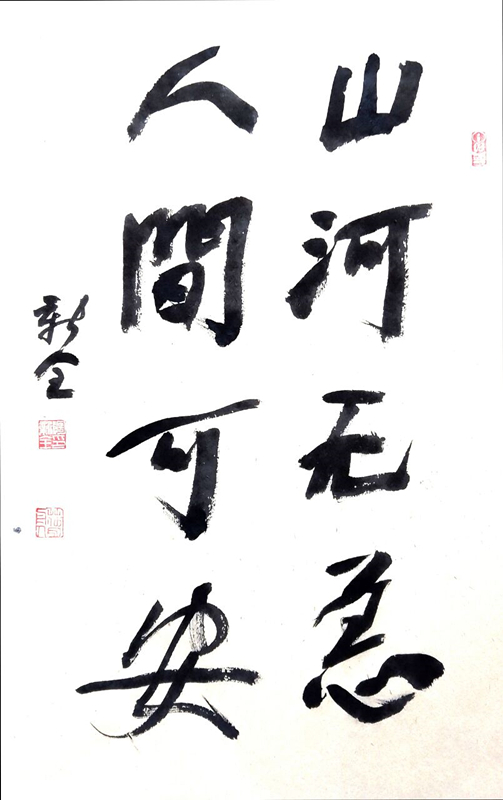 山河无恙
人間可安
新全